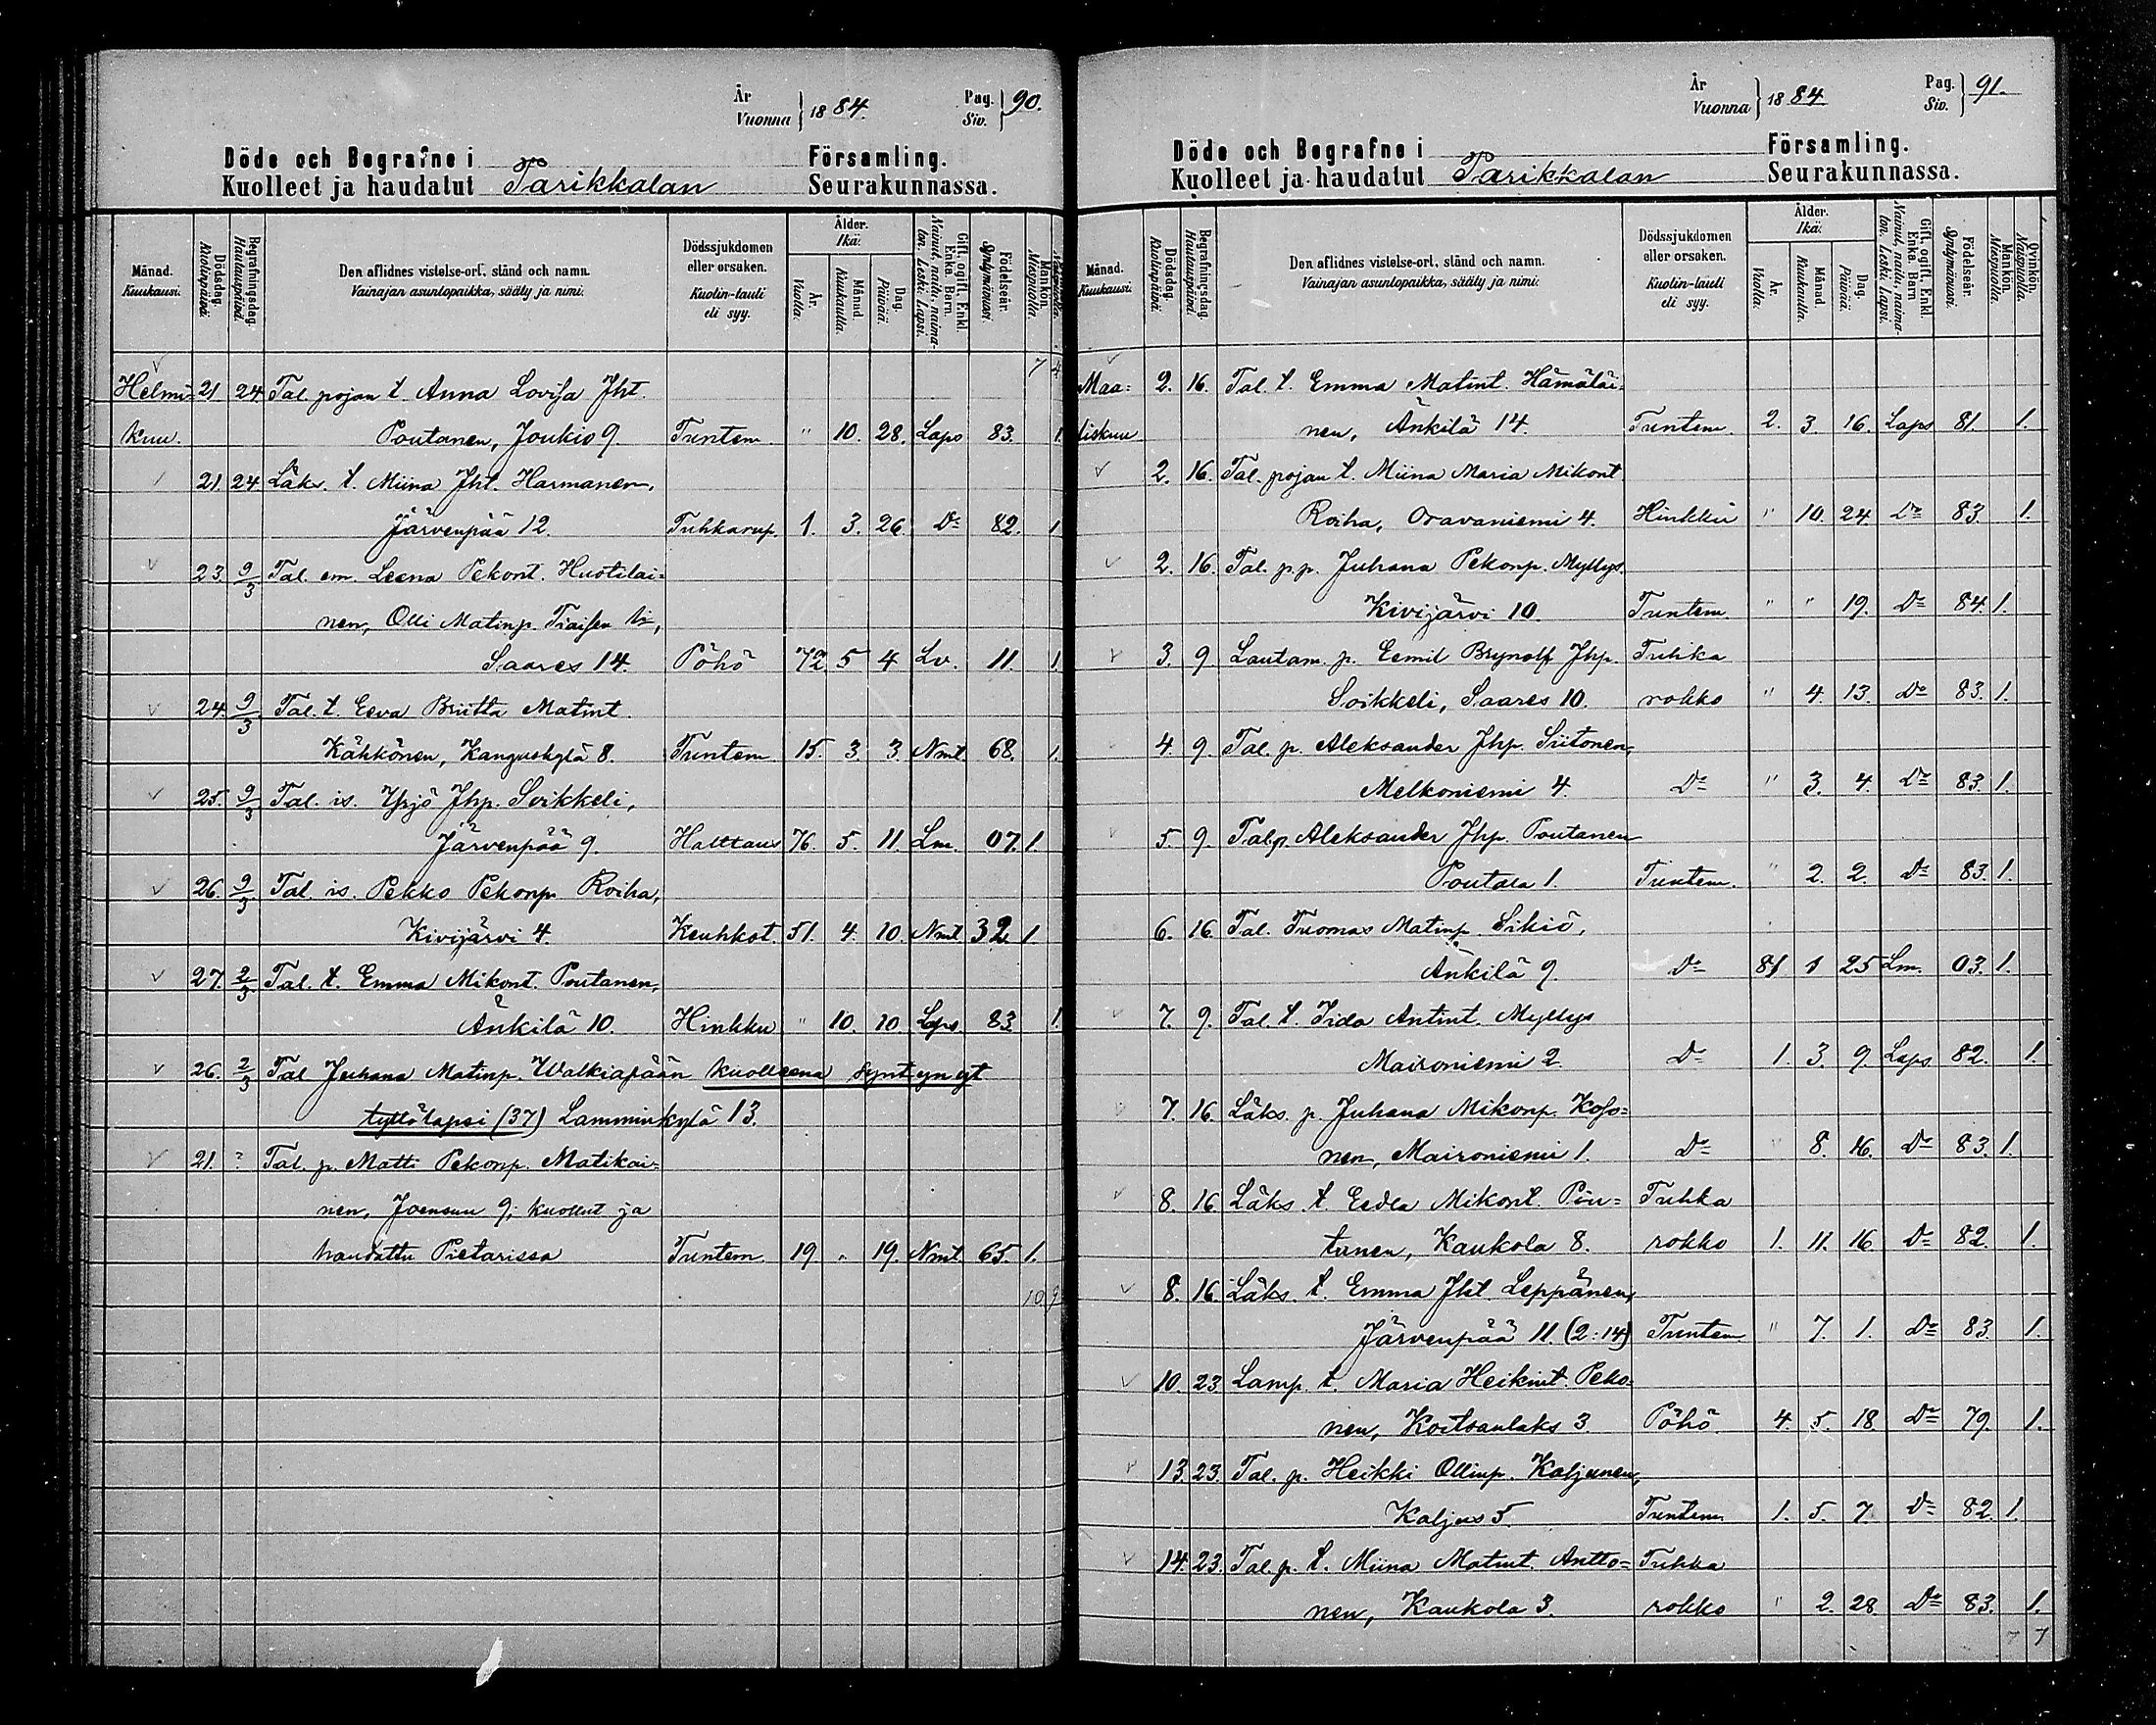 År
Vuonna } 1884.
Pag.
Siv. } 90.
Döde och Begrafne i Församling.
Kuolleet ja haudatut Parikkalan Seurakunnassa.
Månad. Kuukausi.
Dödsdag. Kuolinpäivä.
Begrafningsdag. Hautauspäivä.
Den aflidnes vistelse-ort, stånd och namn.
Vainajan asuntopaikka, sääty ja nimi.
Dödssjukdomen eller orsaken.
Kuolin-tauti eli syy.
Ålder. Ikä.
År. Vuotta.
Månad. Kuukautta.
Dag. Päivää.
Gift, ogift, Enkl. Enka. Barn.
Nainut, naitu, naimaton. Leski. Lapsi.
Födelseår. Syntymävuosi.
Mankön. Miespuolia.
7 4
Helmi= 21 24 Tal. pojan t. Anna Lovisa Jht.
kuu. Poutanen, Joukio 9. Tuntem. " 10. 28. Laps 83. 1.
21 24 Läks. t. Miina Jht. Harmanen,
Järvenpää 12. Tuhkarup. 1. 3. 26. Do 82. 1
23. 9/3 Tal. em. Leena Pekont. Huotilai=
nen, Olli Matinp. Tiaisen
Saares 14. Pöhö 72 5 4 Lv. 11. 1.
24. 9/3 Tal. t. Eeva Briitta Matint.
Kähkönen, Kanguskylä 8. Tuntem. 15. 3. 3. Nmt 68. 1.
25. 9/3 Tal. is. Yrjö Jhp. Soikkeli,
Järvenpää 9. Halttaus 76. 5. 11. Lm. 07. 1.
26. 9/3 Tal. is. Pekko Pekonp. Roiha,
Kivijärvi 4. Keuhkot. 51. 4. 10. Nmt 32 1.
27. 2/3 Tal. t. Emma Mikont. Poutanen,
Änkilä 10. Hinkku " 10. 10. Laps. 83 1.
26. 2/3 Tal Juhana Matinp. Walkiapään kuolleena syntynyt
tyttölapsi (37) Lamminkylä 13.
21. ? Tal. p. Matti Pekonp. Matikai=
nen, Joensuu 9; kuollut ja
haudattu Pietarissa Tuntem. 19. " 19. Nmt. 65. 1.
10 9
År
Vuonna } 1884
Pag.
Siv. } 91.
Döde och Begrafne i Församling.
Kuolleet ja haudatut Parikkalan Seurakunnassa.
Månad. Kuukausi.
Dödsdag. Kuolinpäivä.
Begrafningsdag. Hautauspäivä.
Den aflidnes vistelse-ort, stånd och namn.
Vainajan asuntopaikka, sääty ja nimi.
Dödssjukdomen eller orsaken.
Kuolin-tauti eli syy.
Ålder. Ikä.
År. Vuotta.
Månad. Kuukautta.
Dag. Päivää.
Gift, ogift, Enkl. Enka. Barn
Nainut, naitu, naimaton. Leski. Lapsi.
Födelseår. Syntymävuosi.
Mankön. Miespuolia.
Qvinkön. Naispuolia.
Maa= 2. 16. Tal. t. Emma Matint. Hämäläi=
liskuu nen, Änkilä 14. Tuntem. 2. 3. 16. Laps 81. 1.
2. 16. Tal. pojan t. Miina Maria Mikont
Roiha, Oravaniemi 4. Hinkku " 10. 24. Do 83. 1.
2. 16. Tal. p.p. Juhana Pekonp. Myllys.
Kivijärvi 10. Tuntem. " " 19. Do 84. 1.
3. 9 Lautam. p. Eemil Brynolf Jhp. Tuhka
Soikkeli, Saares 10. rokko " 4. 13. Do 83. 1.
4. 9. Tal. p. Aleksander Jhp. Siitonen,
Melkoniemi 4. Do " 3. 4. Do 83. 1.
5. 9. Tal. p. Aleksander Jhp. Poutanen
Poutala 1. Tuntem. " 2. 2. Do 83. 1.
6. 16. Tal. Tuomas Matinp. Sikiö,
Änkilä 9. Do 81 1 25 Lm. 03. 1.
7. 9. Tal. t. Iida Antint. Myllys
Maironiemi 2. Do 1. 3. 9. Laps 82. 1.
7. 16. Läks. p. Juhana Mikonp. Koso=
nen, Maironiemi 1. Do " 8. 16. Do 83. 1.
8. 16 Läks. t Eedla Mikont. Pou= Tuhka
tanen, Kaukola 8. rokko 1. 11. 16. Do 82. 1.
8. 16. Läks. t. Emma Jht. Leppänen,
Järvenpää 11. (2:14) Tuntem " 7. 1. Do 83. 1.
10. 23. Lamp. t. Maria Heikint. Peko=
nen, Koitsanlaks 3. Pöhö. 4. 5. 18. Do 79. 1.
13. 23. Tal. p. Heikki Ollinp. Kaljunen,
Kaljus 5. Tuntem 1. 5. 7. Do 82. 1.
14. 23. Tal. p. t. Miina Matint. Antto= Tuhka
nen, Kaukola 3. rokko " 2. 28. Do 83. 1.
7 7